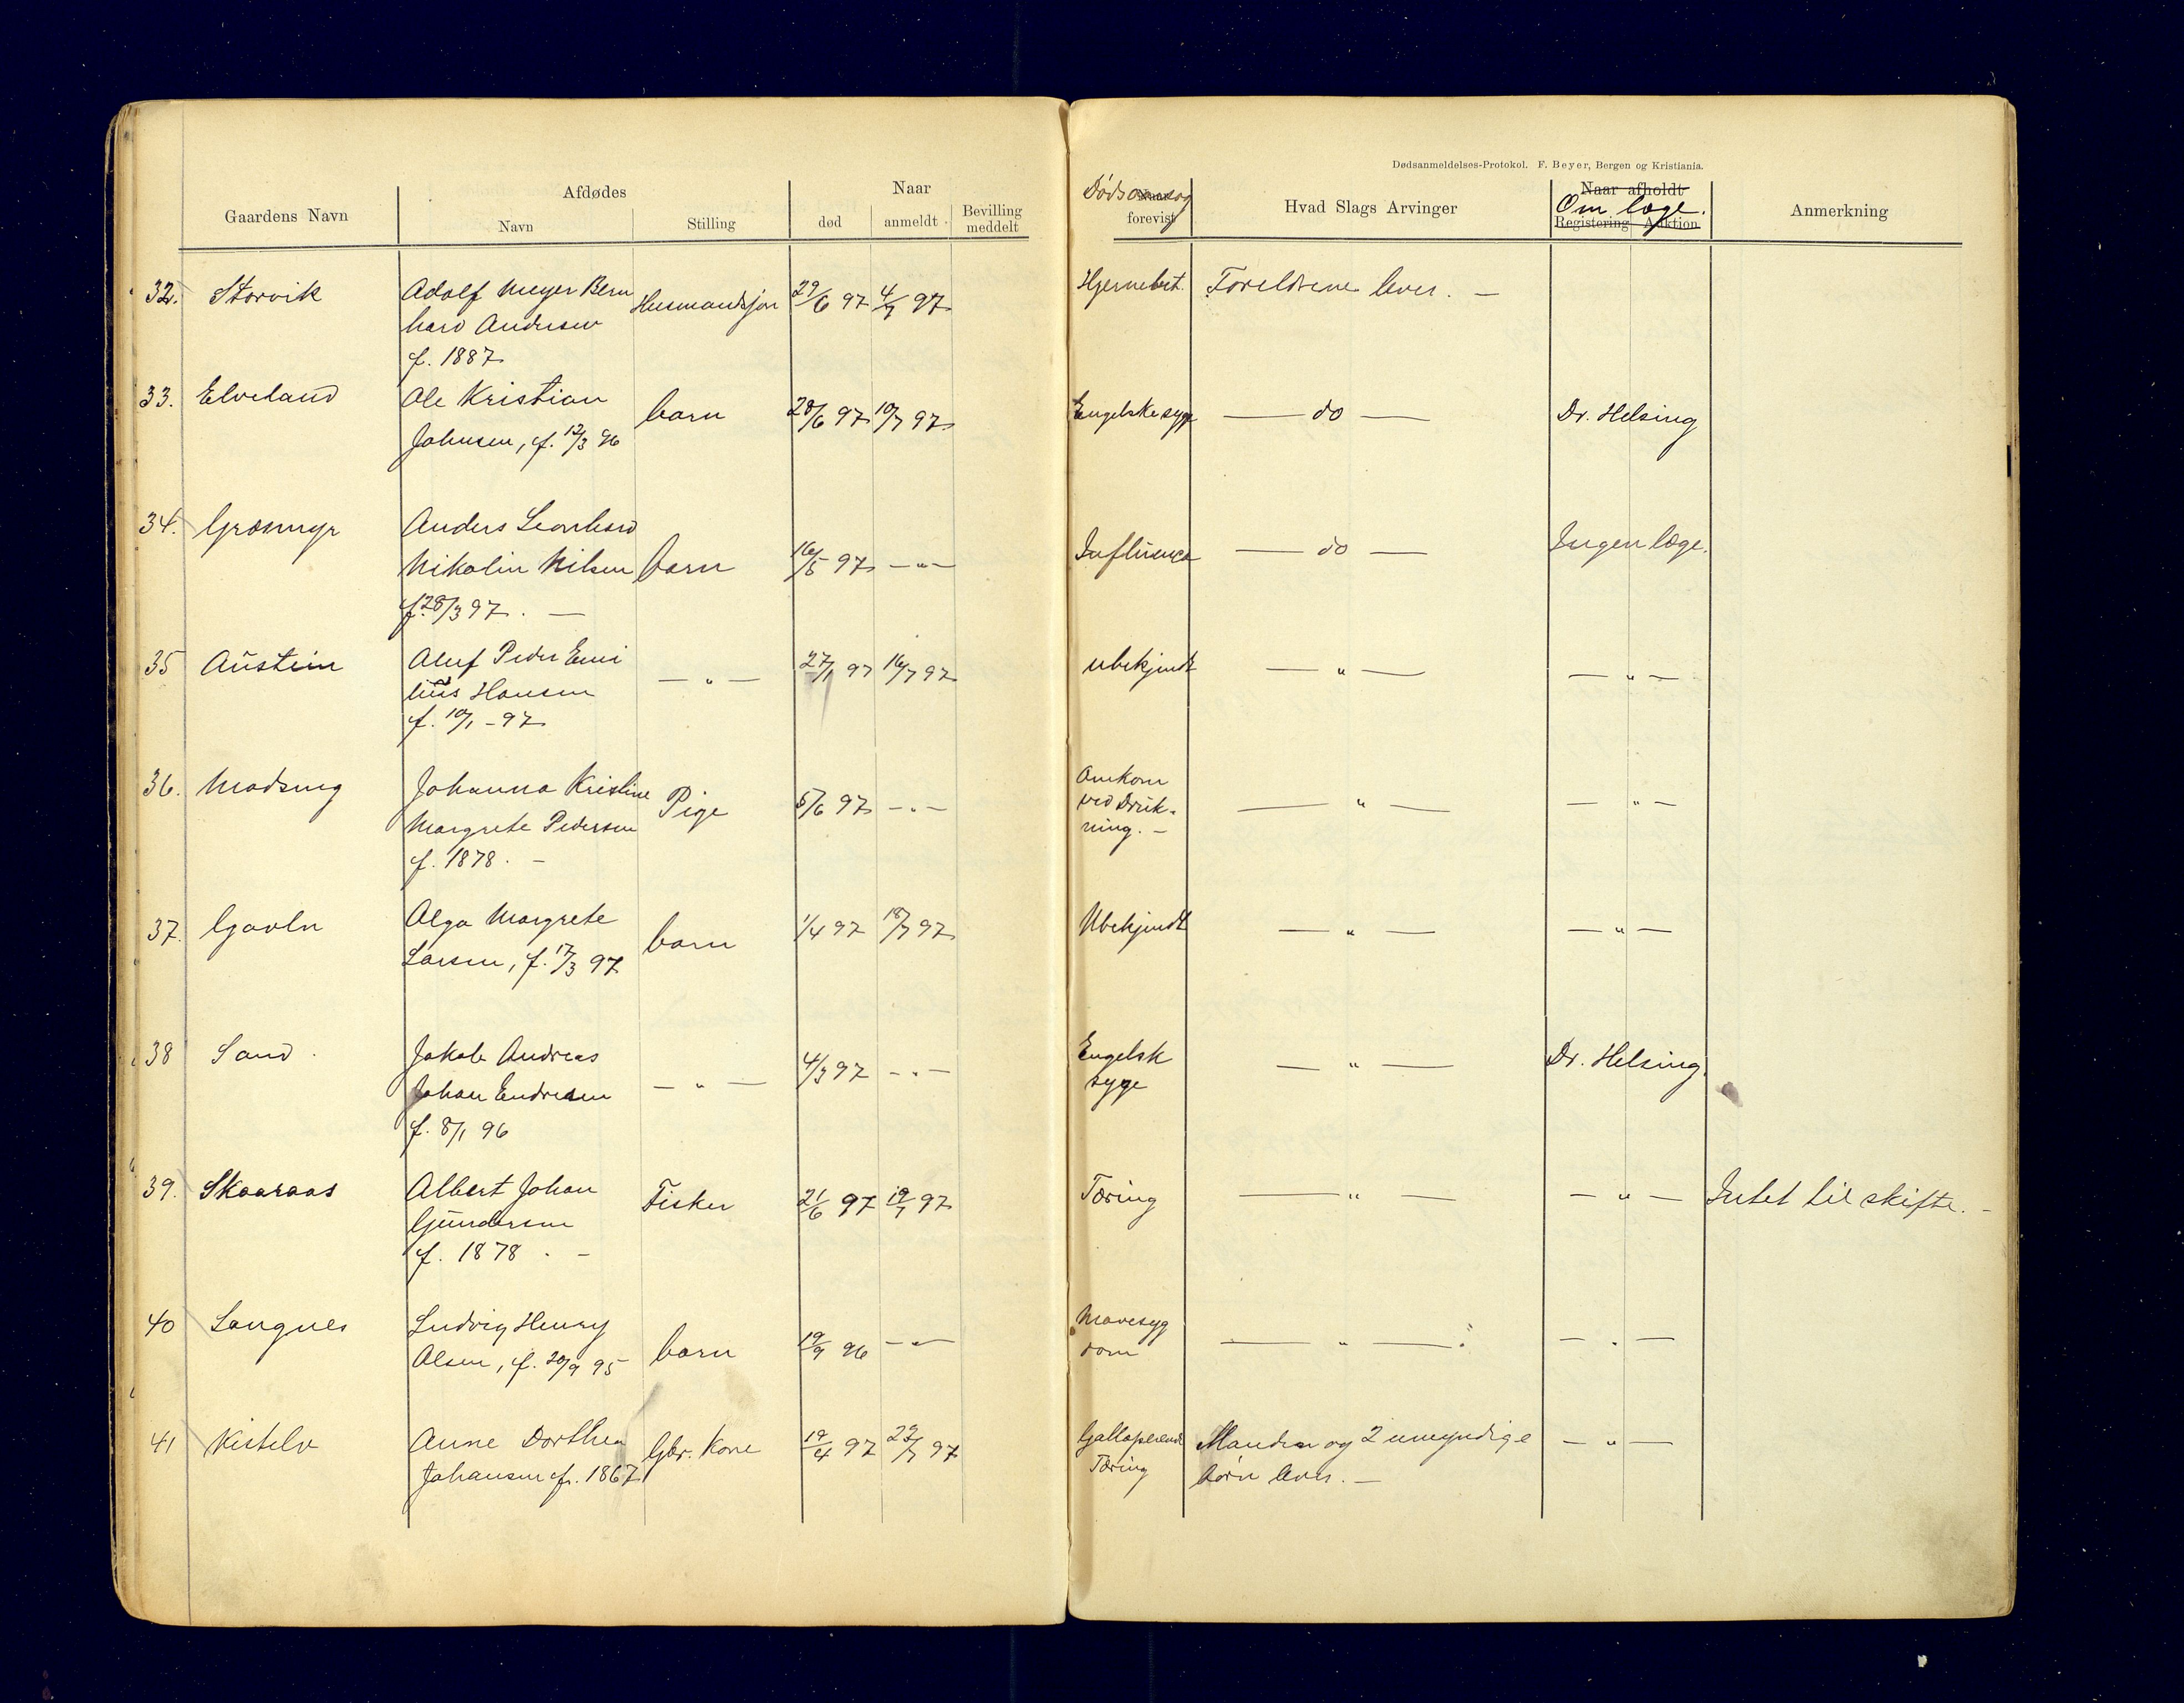 Dødsanmeldelses-Protokol. F. Beyer, Bergen og Kristiania.
Gaardens Navn
Afdødes
Navn
Stilling
Naar
død
anmeldt
Bevilling
meddelt
Dødsaarsag
Naar
forevist
Hvad Slags Arvinger
Naar afholdt
Om læge.
Registering Auktion
Anmerkning
32. Storvik
Adolf Meyer Bern
hard Andersen
f. 1887
Husmandssøn 29/6 97 4/7 97
Hjernebet. Foreldrene lever. —
33. Elveland
Ole Kristian
Johnsen, f. 12/3 96
barn 28/6 97 10/7 97
Engelskesyge — do — Dr. Helsing
34. Græsmyr
Anders Leonhard
Nikolin Nilsen
f. 28/3 97. —
barn 16/5 97 — " —
Influensa — do — Ingen læge.
35 Austein
Oluf Peder Emi
lius Hansen
f. 10/1 - 97
— " — 27/1 97 16/7 97
ubekjendt — " — — " —
36. Madsmyr
Johanna Kristine
Margrete Pedersen
f. 1878. —
Pige 5/6 97 — " —
Omkom
ved Druk-
ning. —
— " — — " —
37. Gavln
Olga Margrete
Larsen, f. 17/3 97
barn 1/4 97 18/7 97
Ubekjendt — " — — " —
38 Sand.
Jakob Andreas
Johan Endresen
f. 8/1 96
— " — 4/3 97 — " —
Engelsk
syge
— " — Dr. Helsing.
39. Skaaraas
Albert Johan
Gundersen
f. 1878. —
Fisker 21/6 97 19/7 97
Tæring — " — — " — Intet til skifte. —
40 Langnes
Ludvig Henry
Olsen, f. 20/9 95
barn 19/9 96 — " —
Mavesyg
dom
— " — — " —
41 Kistelv
Anne Dorthea
Johansen f. 1867
Gbr. Kone 19/4 97 22/7 97
Galloperende
Tæring
Manden og 2 umyndige
børn lever. —
— " —